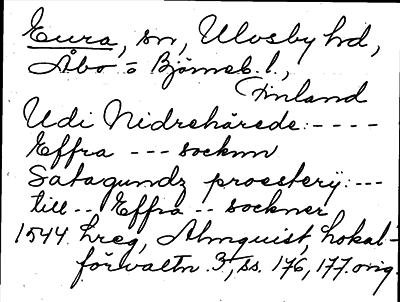 Eura, sn, Ulvsby hd,
Åbo o Björneb. l.,
Finland
Udi Nidrehärede: - - - -
Effra - - - socknn
Satagundz proesterij: - - -
till - - Effra - - sockner
1544 hreg, Almquist, Lokal-
förvaltn. 3, ss. 176, 177. orig.